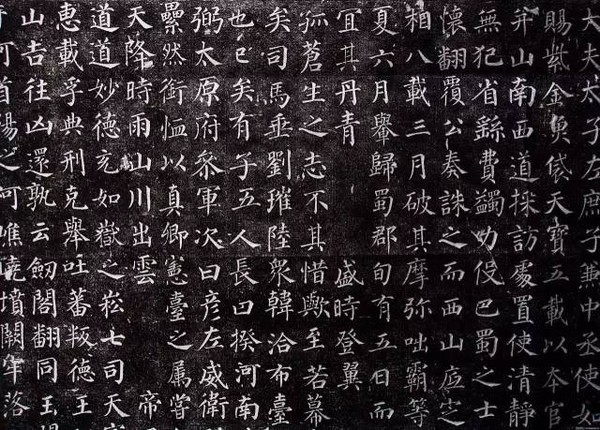 大夫太子左庶子兼中丞使如
賜紫金魚袋天寶五載以本官
并山南西道採訪處置使清靜
無犯省繇費蠲力役巴蜀之士
懷翻覆公奏誅之而西山底定
相八載三月破其摩弥咄霸等
夏六月轝歸蜀郡旬有五日而
宜其丹青 盛時登翼
孤蒼生之志不其惜歟至若幕
矣司馬垂劉璀陸衆韓洽布臺
也已矣有子五人長曰揆河南
弼太原府叅軍次曰彦左威衛
纍然銜恤以真卿憲臺之属嘗
天降時雨山川出雲 帝
道道妙德充如嶽之崧七司天
惠載孚典刑克舉吐蕃叛德王
山吉往凶還孰云劒閣翻同玉
首陽之阿噍嶢墳闕牢落